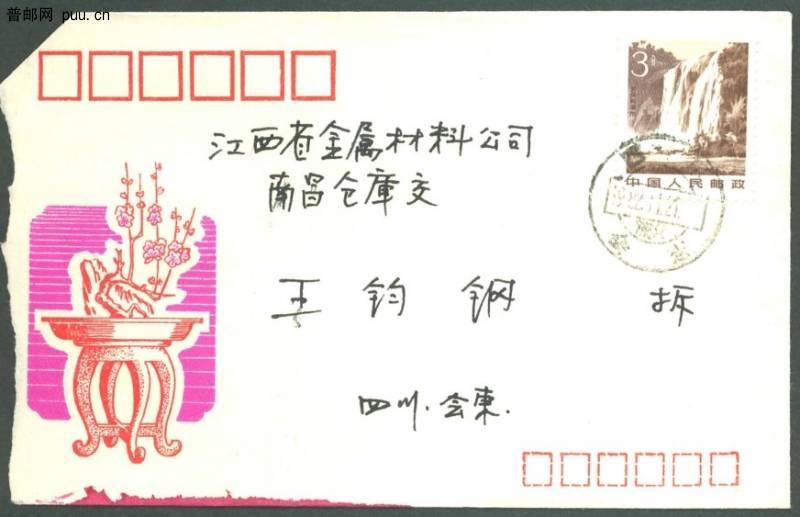 普邮网 puu.cn
3分
中国人民邮政
江西省金属材料公司
南昌仓库交
王钧钢 拆
四川.会東.